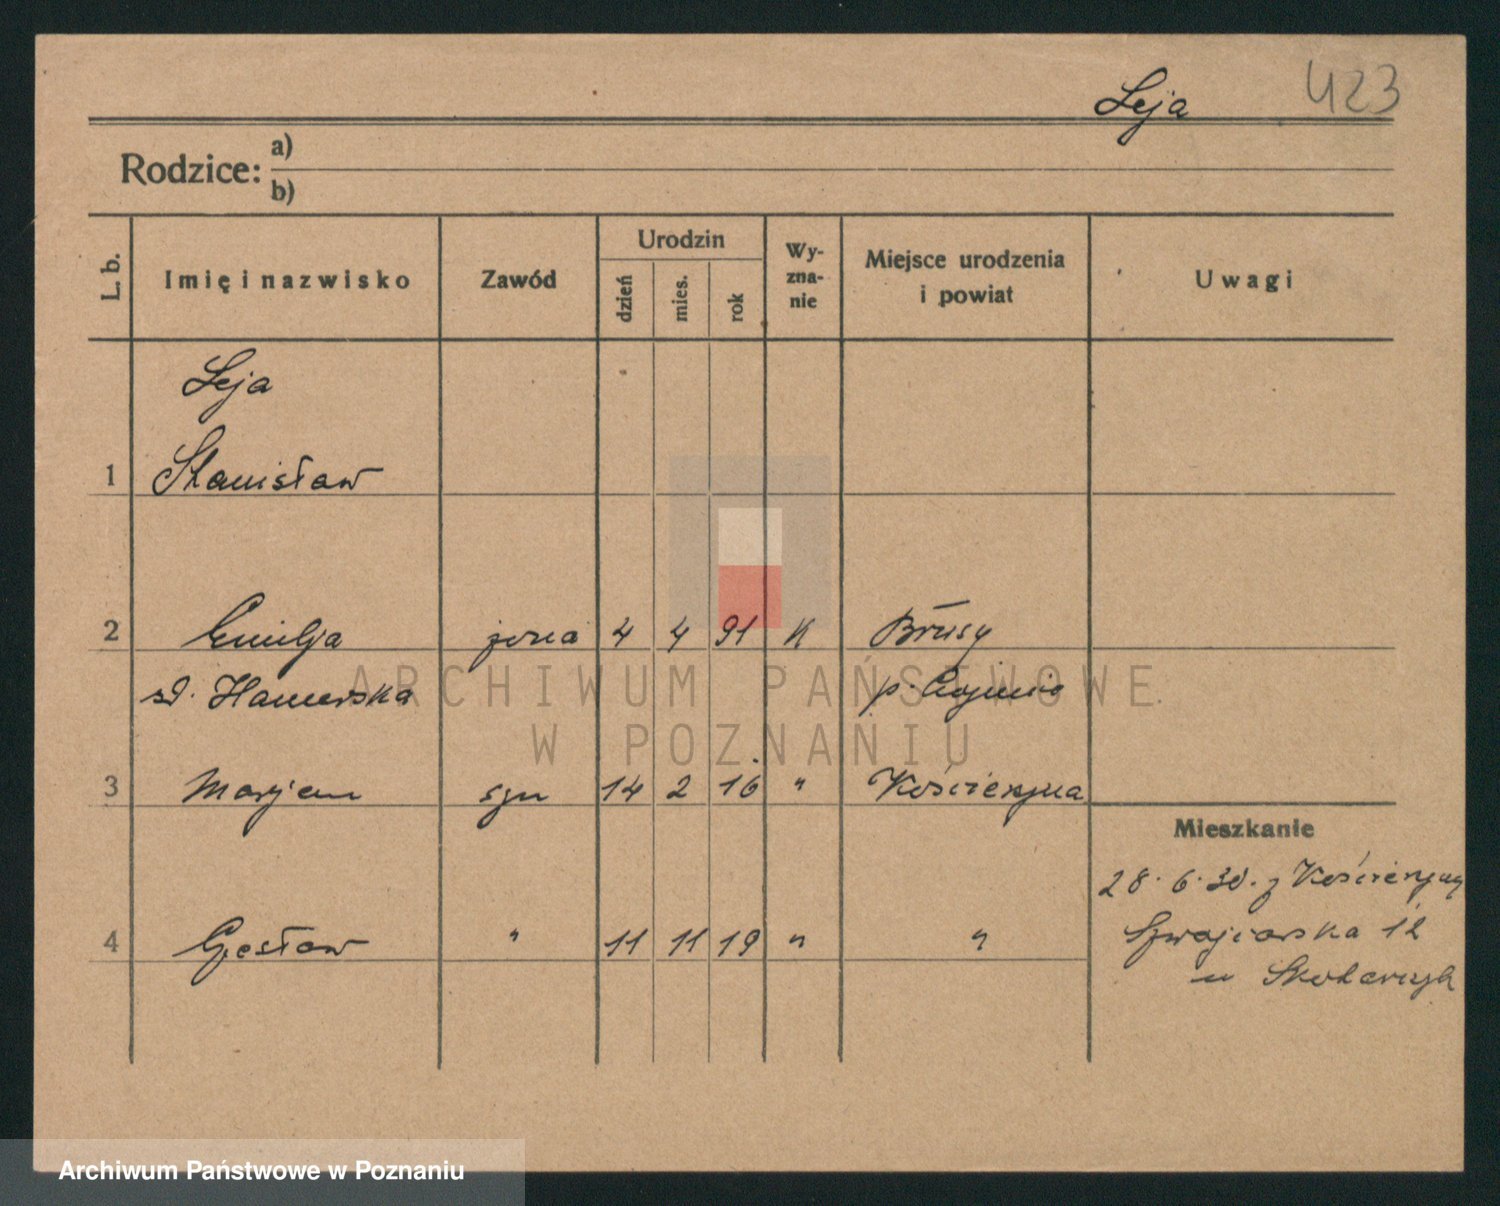 Leja 423
Rodzice: a)
b)
L. b. Imię i nazwisko Zawód Urodzin dzień mies. rok Wy-zna-nie Miejsce urodzenia i powiat Uwagi
Leja
1 Stanisław
2 Emilja żona 4 4 91 K Brusy
Hamerska p. Chojnice
3 Marjan syn 14 2 16 " Kościerzyna
Mieszkanie
28.6.30. z Kościerzyny
4 Czesław " 11 11 19 " "
Szwajcarska 12
u
ARCHIWUM PAŃSTWOWE
W POZNANIU
Archiwum Państwowe w Poznaniu